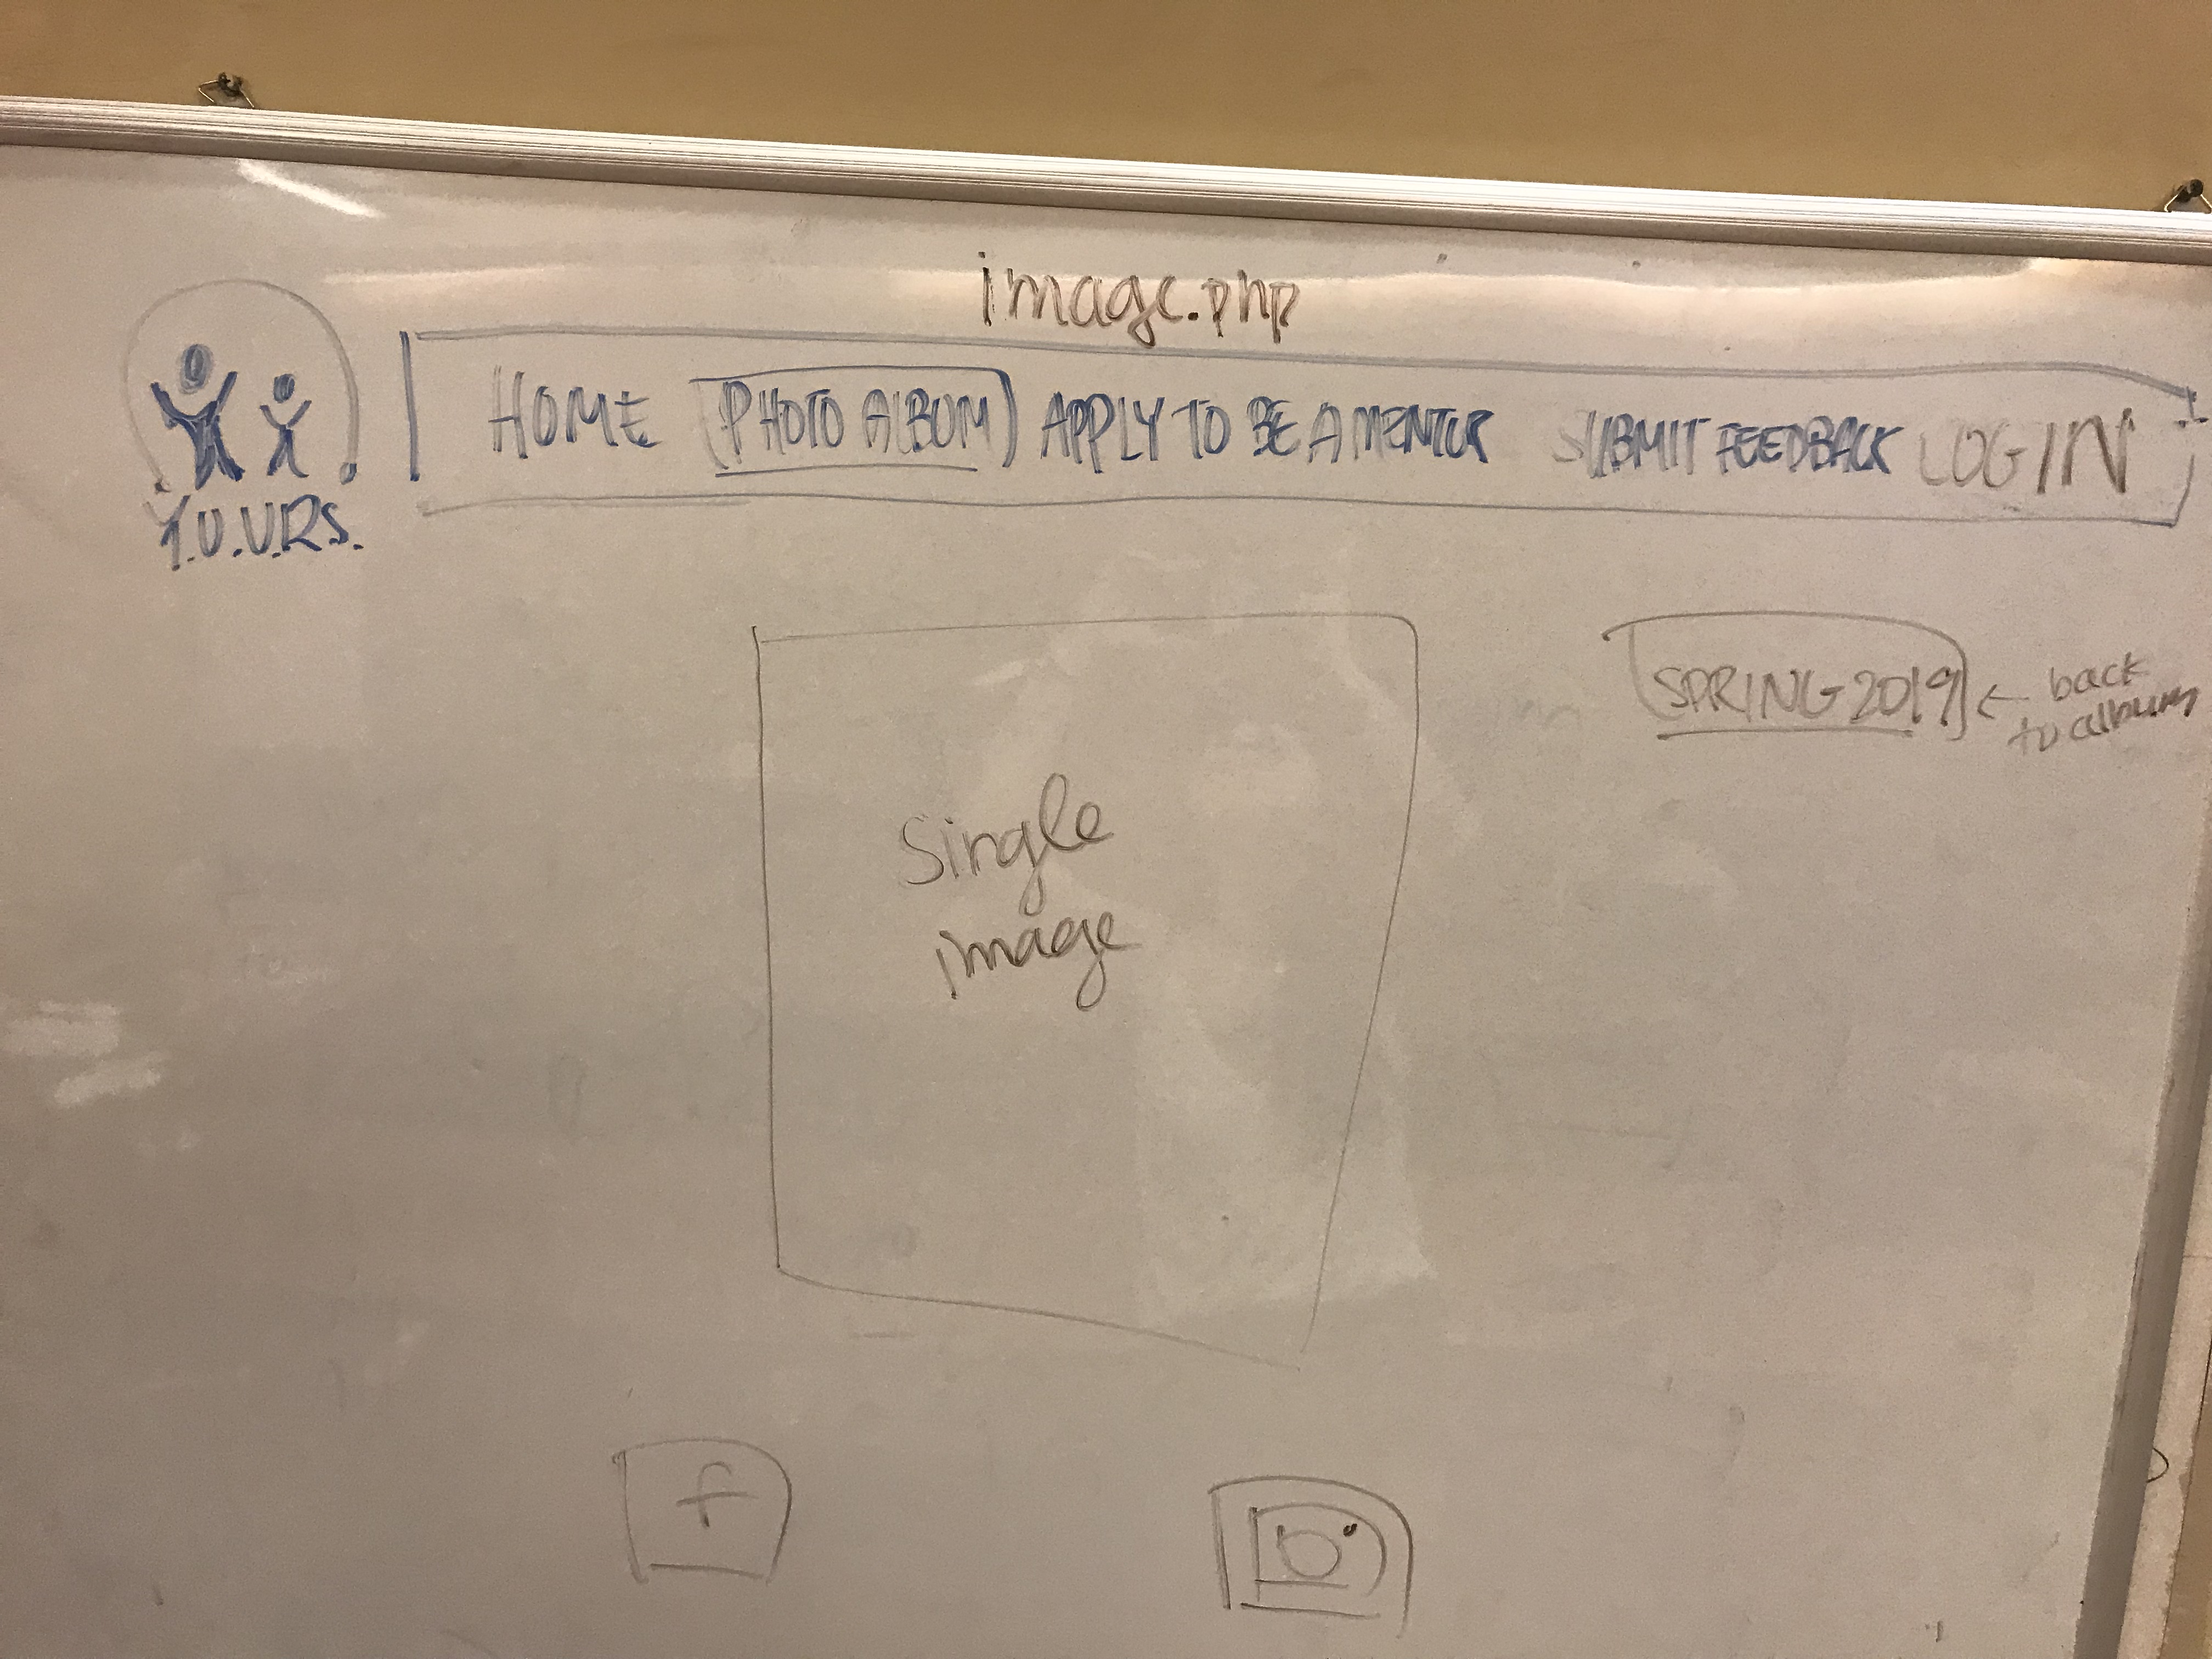 image.php
HOME PHOTO ALBUM APPLY TO BE A MENTOR SUBMIT FEEDBACK LOGIN
Y.O.U.R.S.
SPRING 2019 ← back
to album
Single
image
f